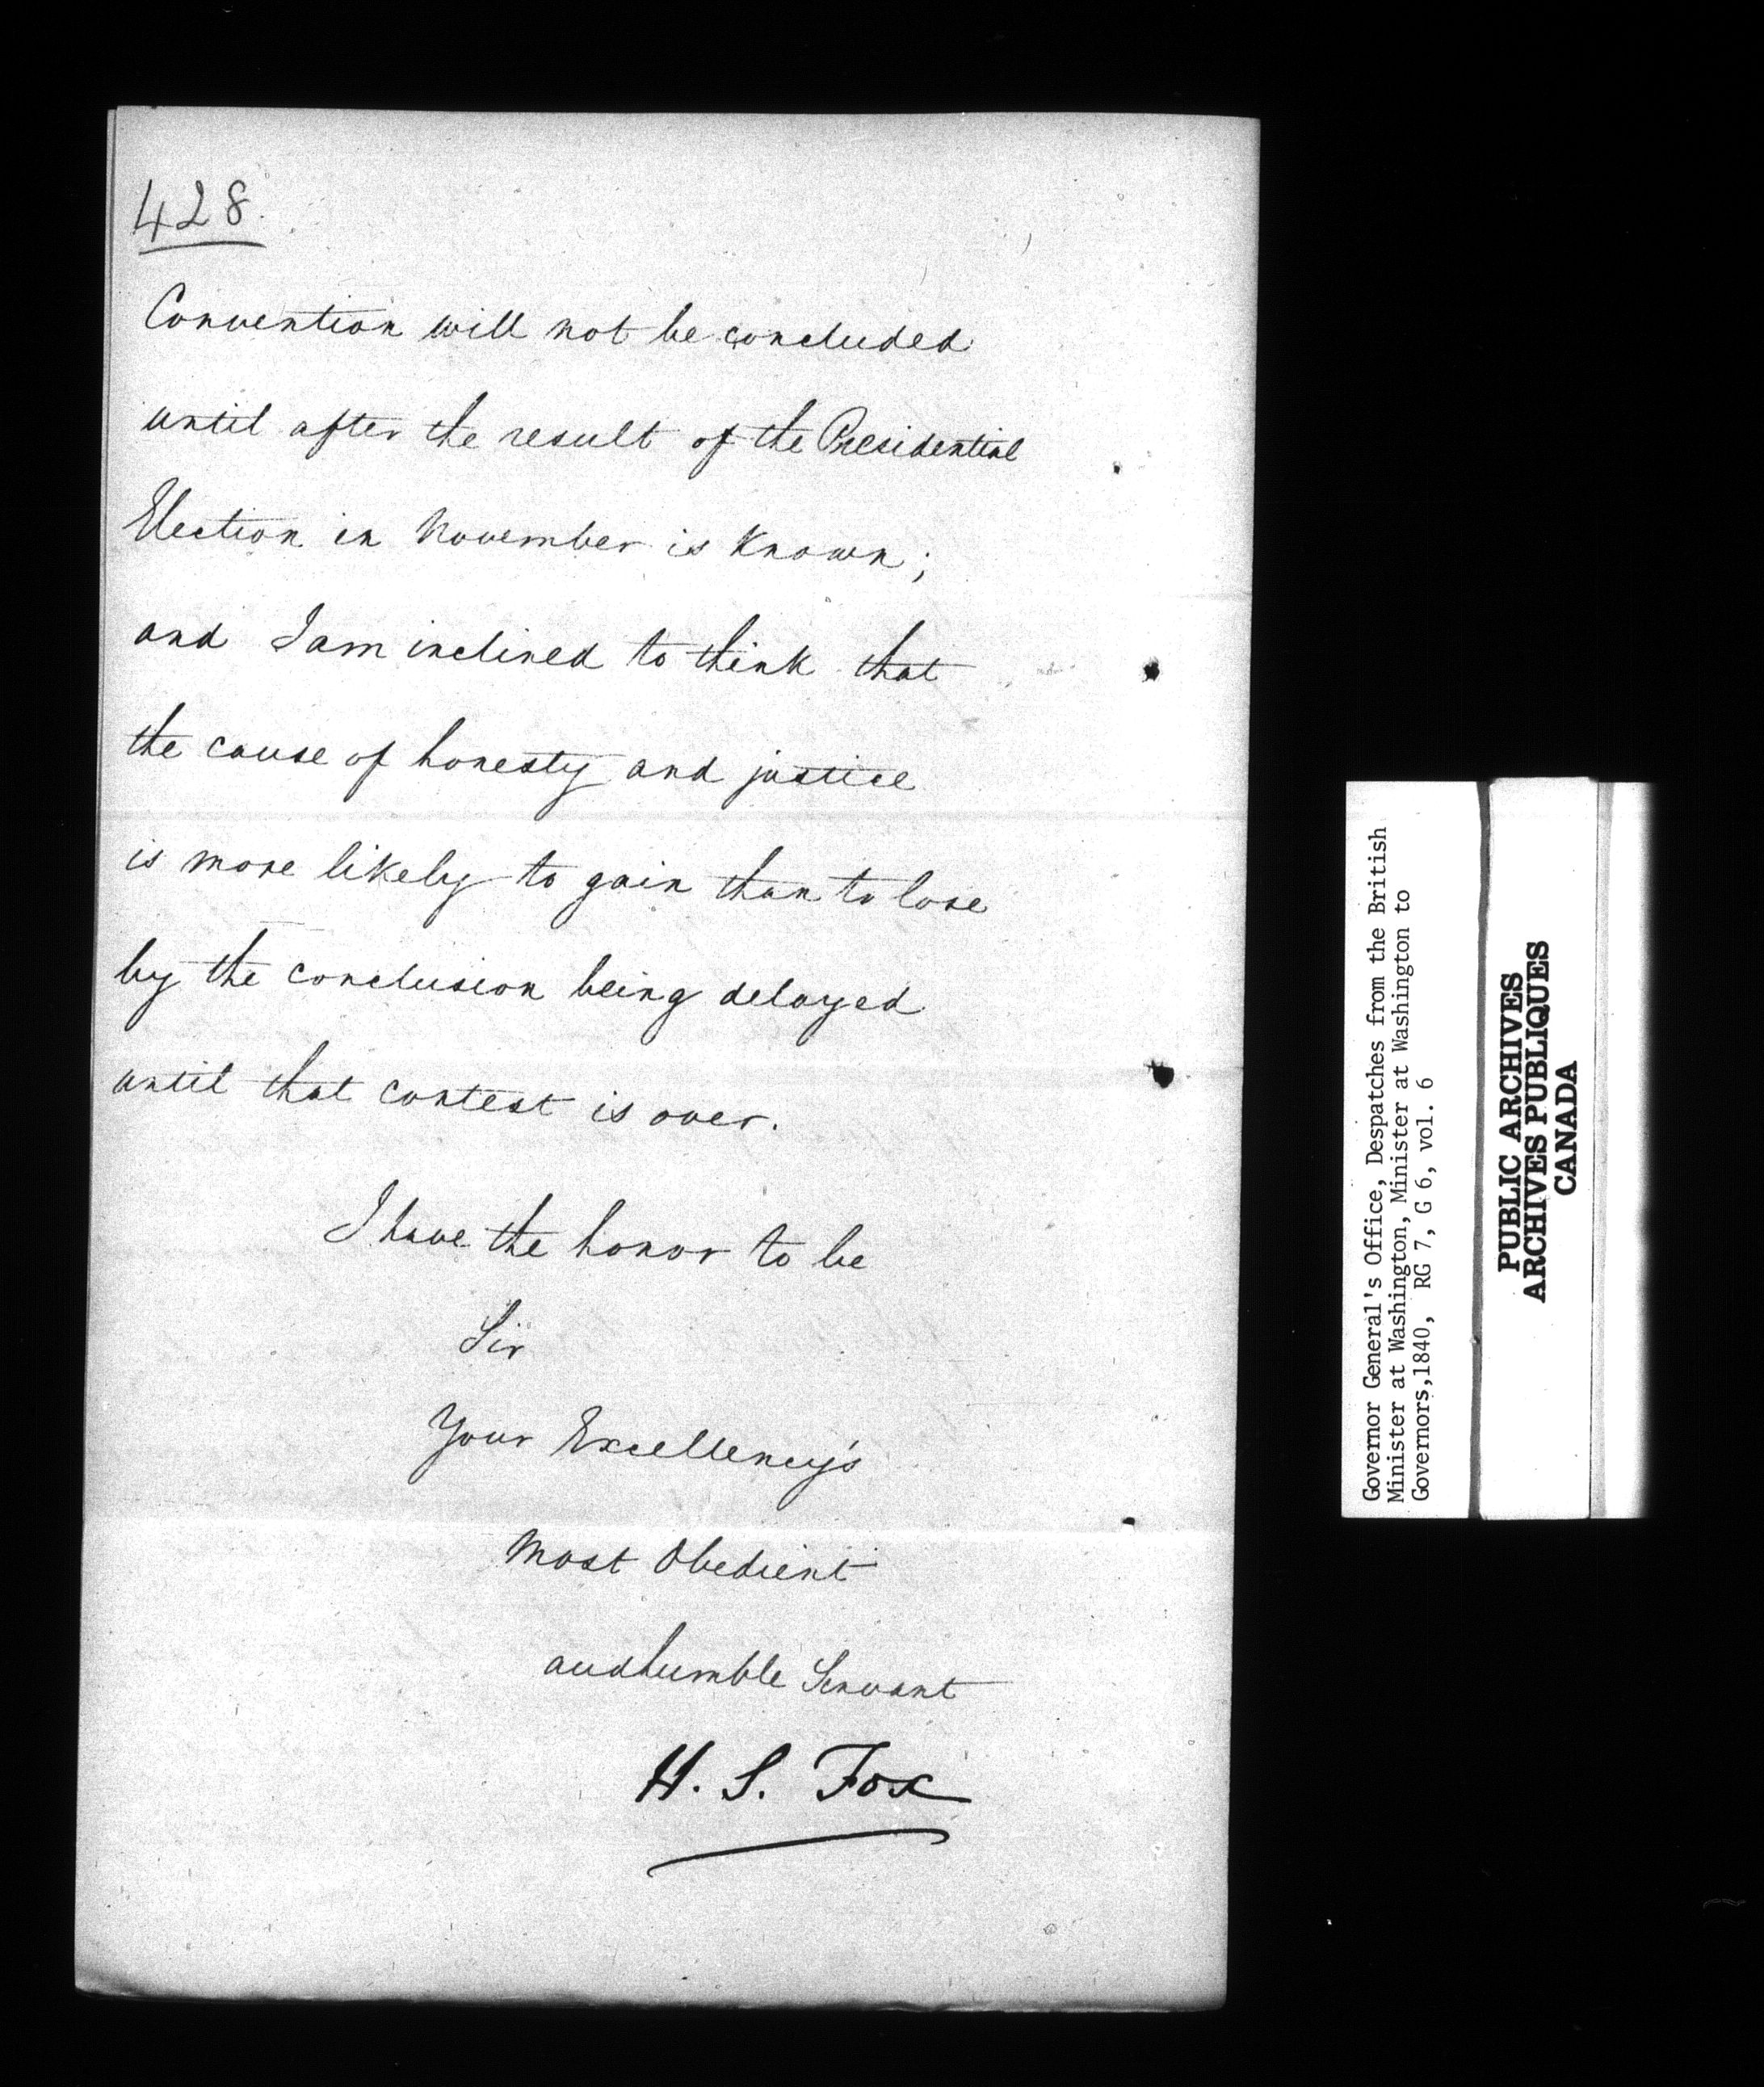 428.
Convention will not be concluded
until after the result of the Presidential
Election in November is known;
and I am inclined to think that
the cause of honesty and justice
is more likely to gain than to lose
by the conclusion being delayed
until that contest is over.
I have the honor to be
Sir
Your Excellency's
Most Obedient
and humble Servant
H. S. Fox
Governor General's Office, Despatches from the British
Minister at Washington, Minister at Washington to
Governors,1840, RG 7, G 6, vol. 6
PUBLIC ARCHIVES
ARCHIVES PUBLIQUES
CANADA